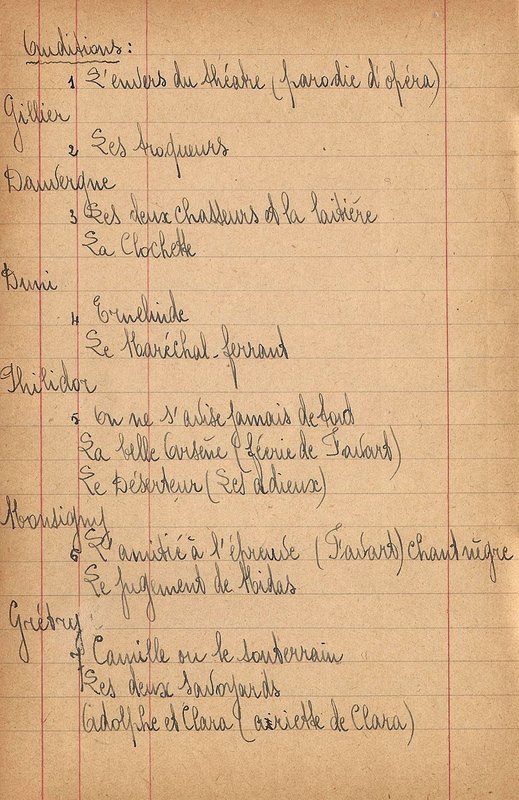 Auditions :
1 L'envers du théatre (parodie d'opéra)
Gillier
2 Les troqueurs
Dauvergne
3 Les deux chasseurs et la laitière
La Clochette
Duni
4 Ernelinde
Le Maréchal-ferrant
Philidor
5 On ne s'avise jamais de tout
La belle Arsène (féerie de Favart)
Le Déserteur (Les adieux)
Monsigny
6 L'amitié à l'épreuve (Favart) chant nègre
Le jugement de Midas
Grétry
7 Camille ou le souterrain
Les deux savoyards
Adolphe et Clara (ariette de Clara)